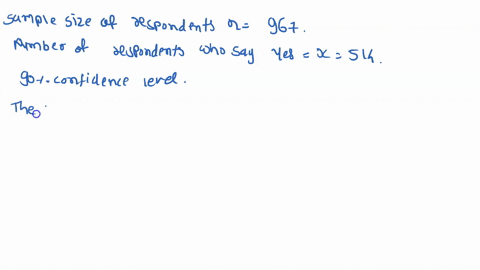 Sample size of respondents n = 967.
Number of respondents who say Yes = x = 514.
90%. confidence level.
The